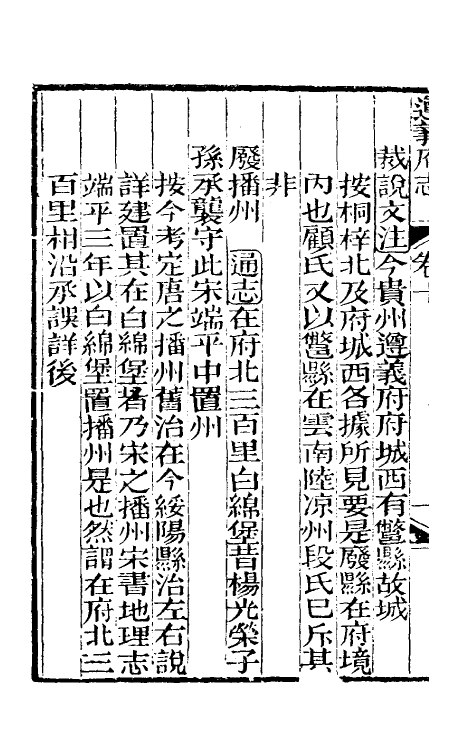 遵義府志 卷十
裁說文注今貴州遵義府府城西有鄨縣故城
按桐梓北及府城西各據所見要是廢縣在府境
內也顧氏又以鄨縣在雲南陸凉州段氏已斥其
非
廢播州 通志在府北三百里白綿堡昔楊光榮子
孫承襲守此宋端平中置州
按今考定唐之播州舊治在今綏陽縣治左右說
詳建置其在白綿堡者乃宋之播州宋書地理志
端平三年以白綿堡置播州是也然謂在府北三
百里相沿承誤詳後